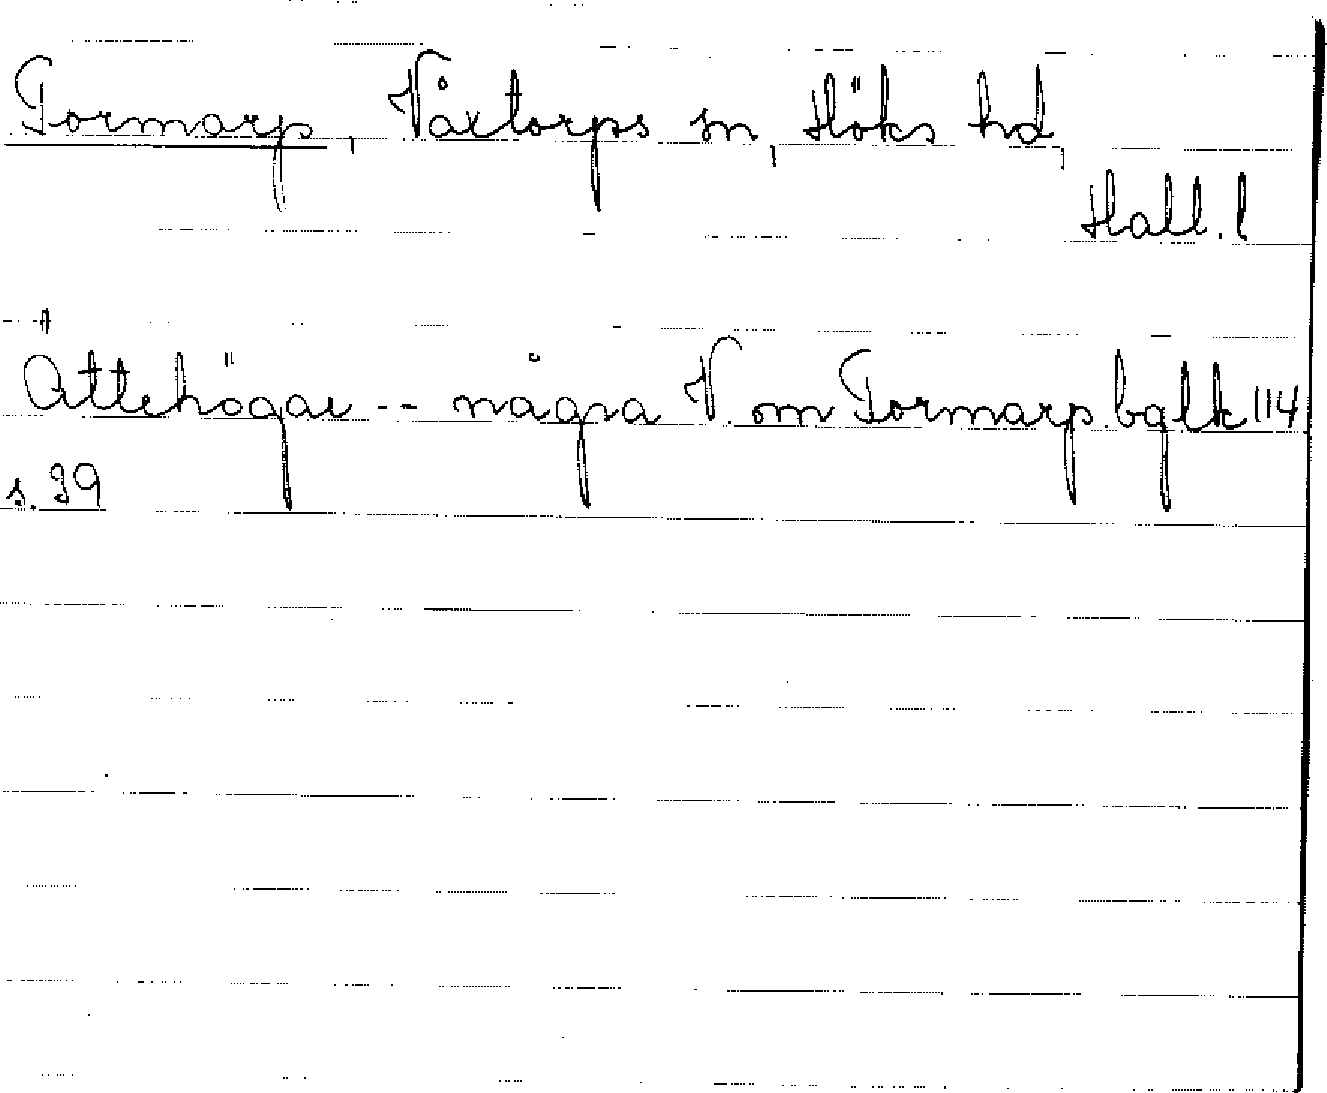 Tormarp, Våxtorps sn, Höks hd,
Hall. l
Ättehögar -- några V. om Tormarp. bglk 114
s. 39